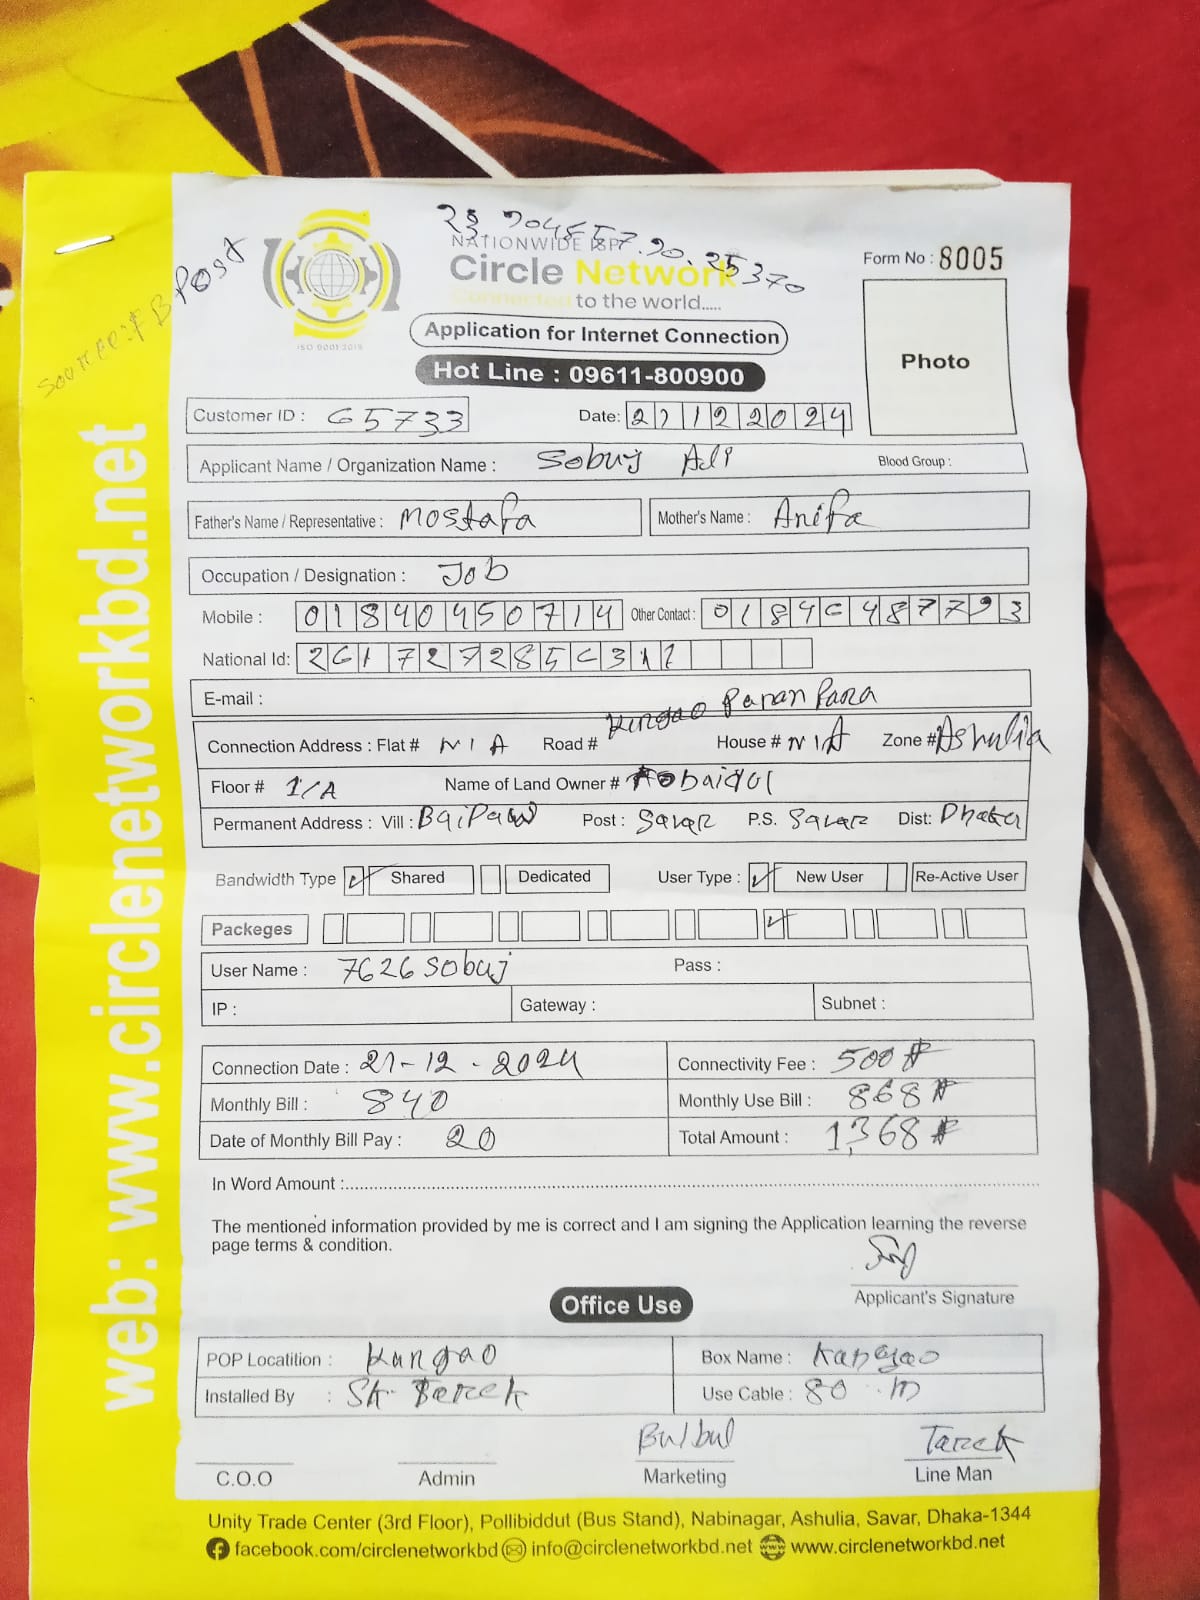 Source: FB Post
23.904857.90.25370
NATIONWIDE ISP
Circle Network
Connected to the world.....
ISO 9001:2015
Form No : 8005
Application for Internet Connection
Photo
Hot Line : 09611-800900
Customer ID : 65733 Date: 21122024
Applicant Name / Organization Name : Sobuj Ali Blood Group :
Father's Name / Representative : Mostafa Mother's Name : Anifa
Occupation / Designation : Job
Mobile : 01840450714 Other Contact : 01840487793
National Id:
E-mail :
Kungao Paran Para
Connection Address : Flat # N/A Road # House # N/A Zone # Ashulia
Floor # 1/A Name of Land Owner # Obaidul
Permanent Address : Vill : Post : Savar P.S. Savar Dist: Dhaka
Bandwidth Type Shared Dedicated User Type : New User Re-Active User
Packeges
User Name : 7626sobuj Pass :
IP : Gateway : Subnet :
Connection Date : 21-12-2024 Connectivity Fee : 500
Monthly Bill : 840 Monthly Use Bill : 868
Date of Monthly Bill Pay : 20 Total Amount : 1,368
In Word Amount :
The mentioned information provided by me is correct and I am signing the Application learning the reverse
page terms & condition.
Applicant's Signature
Office Use
POP Locatition : Kungao Box Name :
Installed By : Sk Tarek Use Cable : 80 m
Bulbul Tarek
C.O.O Admin Marketing Line Man
Unity Trade Center (3rd Floor), Pollibiddut (Bus Stand), Nabinagar, Ashulia, Savar, Dhaka-1344
facebook.com/circlenetworkbd info@circlenetworkbd.net www.circlenetworkbd.net
web: www.circlenetworkbd.net